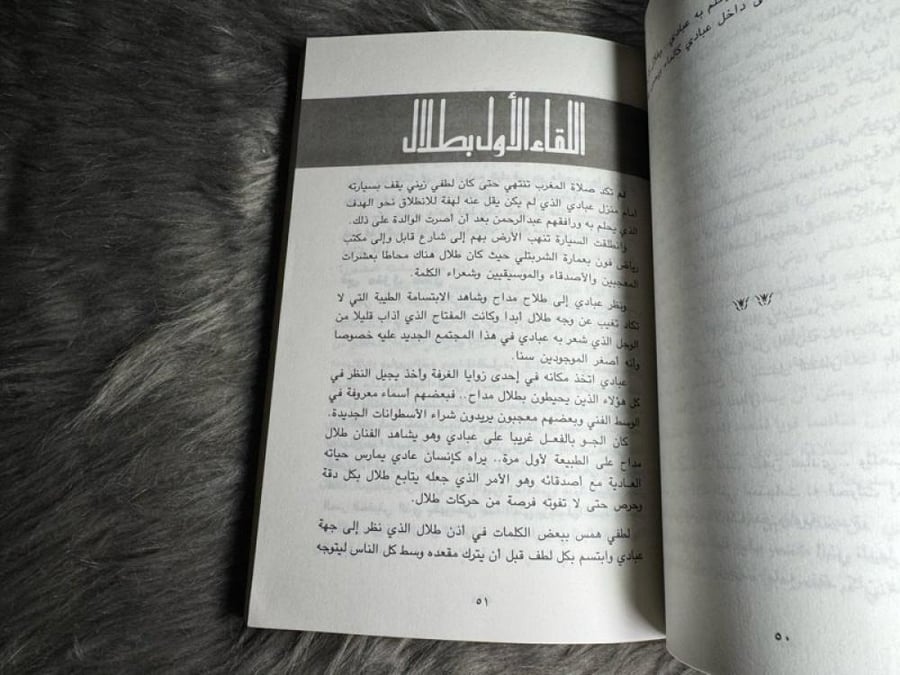 اللقاء الأول بطلال
لم تكد صلاة المغرب تنتهي حتى كان لطفي زيني يقف بسيارته
امام منزل عبادي الذي لم يكن يقل عنه لهفة للانطلاق نحو الهدف
الذي يحلم به ورافقهم عبدالرحمن بعد أن أصرت الوالدة على ذلك.
وانطلقت السيارة تنهب الأرض بهم إلى شارع قابل وإلى مكتب
رياض فون بعمارة الشربتلي حيث كان طلال هناك محاطا بعشرات
المعجبين والأصدقاء والموسيقيين وشعراء الكلمة.
ونظر عبادي إلى طلاح مداح وشاهد الابتسامة الطيبة التي لا
تكاد تغيب عن وجه طلال أبدا وكانت المفتاح الذي أذاب قليلا من
الوجل الذي شعر به عبادي في هذا المجتمع الجديد عليه خصوصا
وأنه أصغر الموجودين سنا.
عبادي اتخذ مكانه في إحدى زوايا الغرفة وأخذ يجيل النظر في
كل هؤلاء الذين يحيطون بطلال مداح.. فبعضهم أسماء معروفة في
الوسط الفني وبعضهم معجبون يريدون شراء الأسطوانات الجديدة.
كان الجو بالفعل غريبا على عبادي وهو يشاهد الفنان طلال
مداح على الطبيعة لأول مرة.. يراه كإنسان عادي يمارس حياته
العادية مع أصدقائه وهو الأمر الذي جعله يتابع طلال بكل دقة
وحرص حتى لا تفوته فرصة من حركات طلال.
لطفي همس ببعض الكلمات في أذن طلال الذي نظر إلى جهة
عبادي وابتسم بكل لطف قبل أن يترك مقعده وسط كل الناس ليتوجه
٥١
به عبادي
داخل عبادي
٥٠